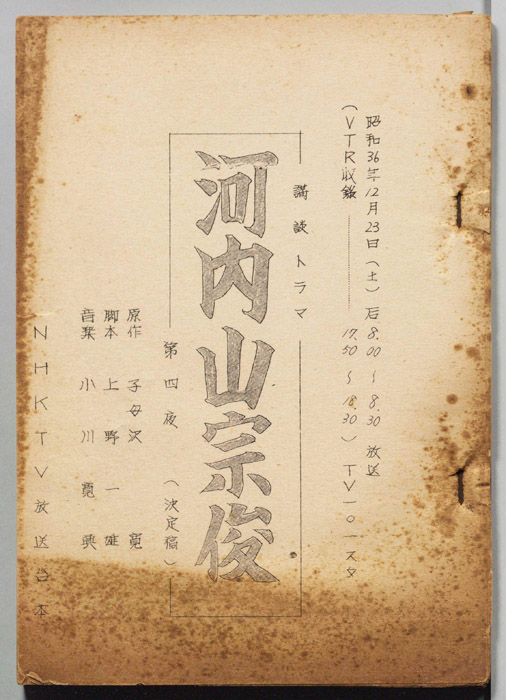 昭和36年12月23日(土)后8.00〜8.30放送
(VTR収録 17.50〜18.30) TV−101スタ
講談ドラマ
河内山宗俊
第四夜 (決定稿)
原作 子母沢 寛
脚本 上野一雄
音楽 小川寛興
NHKTV放送台本